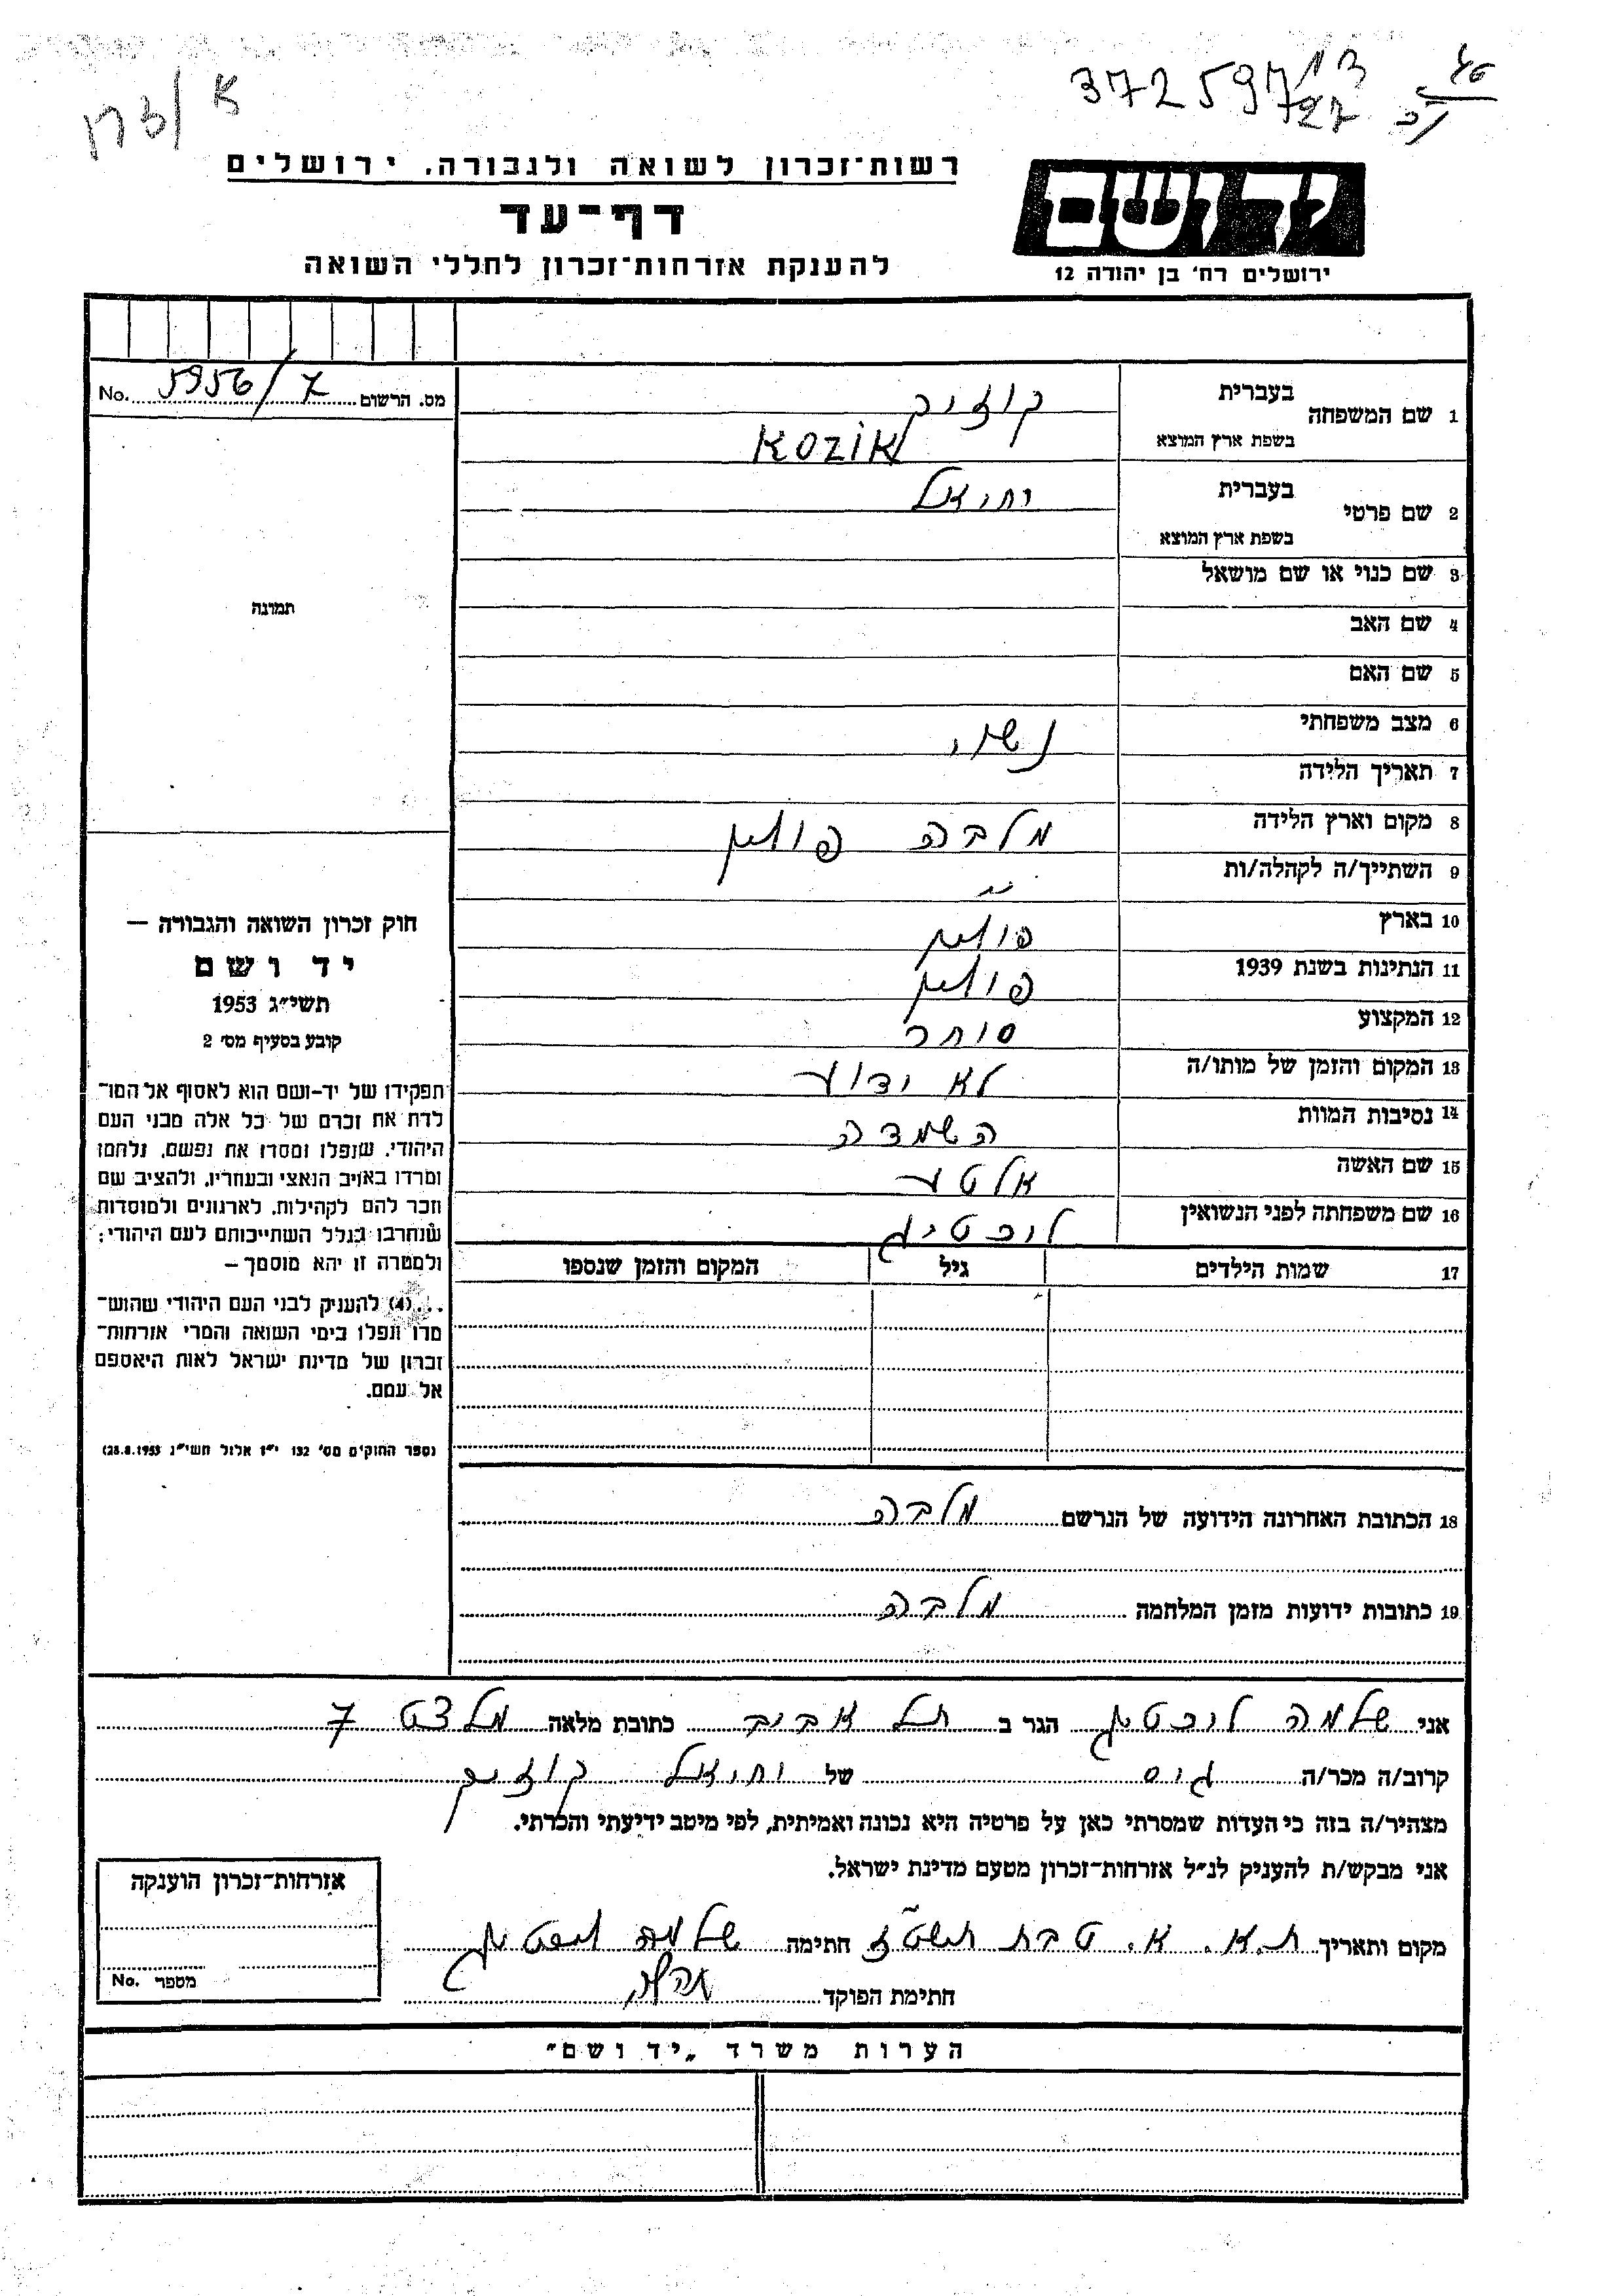 372597/13
27
רשות־זכרון לשואה ולגבורה, ירושלים
דף־עד
להענקת אזרחות־זכרון לחללי השואה
יד ושם
ירושלים רח' בן יהודה 12
מס. הרשום 5956/7 No.
1 שם המשפחה
בעברית קוזיק
בשפת ארץ המוצא KOZIK
2 שם פרטי
בעברית יחיאל
בשפת ארץ המוצא
3 שם כנוי או שם מושאל
4 שם האב
5 שם האם
6 מצב משפחתי נשוי
7 תאריך הלידה
8 מקום וארץ הלידה מלבה פולין
9 השתייך/ה לקהלה/ות
10 בארץ פולין
11 הנתינות בשנת 1939 פולין
12 המקצוע סוחר
13 המקום והזמן של מותו/ה לא ידוע
14 נסיבות המוות השמדה
15 שם האשה אלטע
16 שם משפחתה לפני הנשואין
17 שמות הילדים גיל המקום והזמן שנספו
18 הכתובת האחרונה הידועה של הנרשם מלבה
19 כתובות ידועות מזמן המלחמה מלבה
תמונה
חוק זכרון השואה והגבורה –
יד ושם
תשי״ג 1953
קובע בסעיף מס' 2
תפקידו של יד-ושם הוא לאסוף אל המו־
לדת את זכרם של כל אלה מבני העם
היהודי, שנפלו ומסרו את נפשם, נלחמו
ומרדו באויב הנאצי ובעוזריו, ולהציב שם
וזכר להם לקהילות, לארגונים ולמוסדות
שנחרבו בגלל השתייכותם לעם היהודי;
ולמטרה זו יהא מוסמך –
...(4) להעניק לבני העם היהודי שהוש־
מדו ונפלו בימי השואה והמרי אזרחות־
זכרון של מדינת ישראל לאות היאספם
אל עמם.
(ספר החוקים מס' 132 י״ז אלול תשי״ג 28.8.1953)
אני שלמה הגר ב תל אביב כתובת מלאה 7
קרוב/ה מכר/ה גיס של יחיאל קוזיק
מצהיר/ה בזה כי העדות שמסרתי כאן על פרטיה היא נכונה ואמיתית, לפי מיטב ידיעתי והכרתי.
אני מבקש/ת להעניק לנ״ל אזרחות-זכרון מטעם מדינת ישראל.
מקום ותאריך ת.א. א. טבת תשט״ז חתימה שלמה
חתימת הפוקד
אזרחות-זכרון הוענקה
מספר No.
הערות משרד „יד ושם״